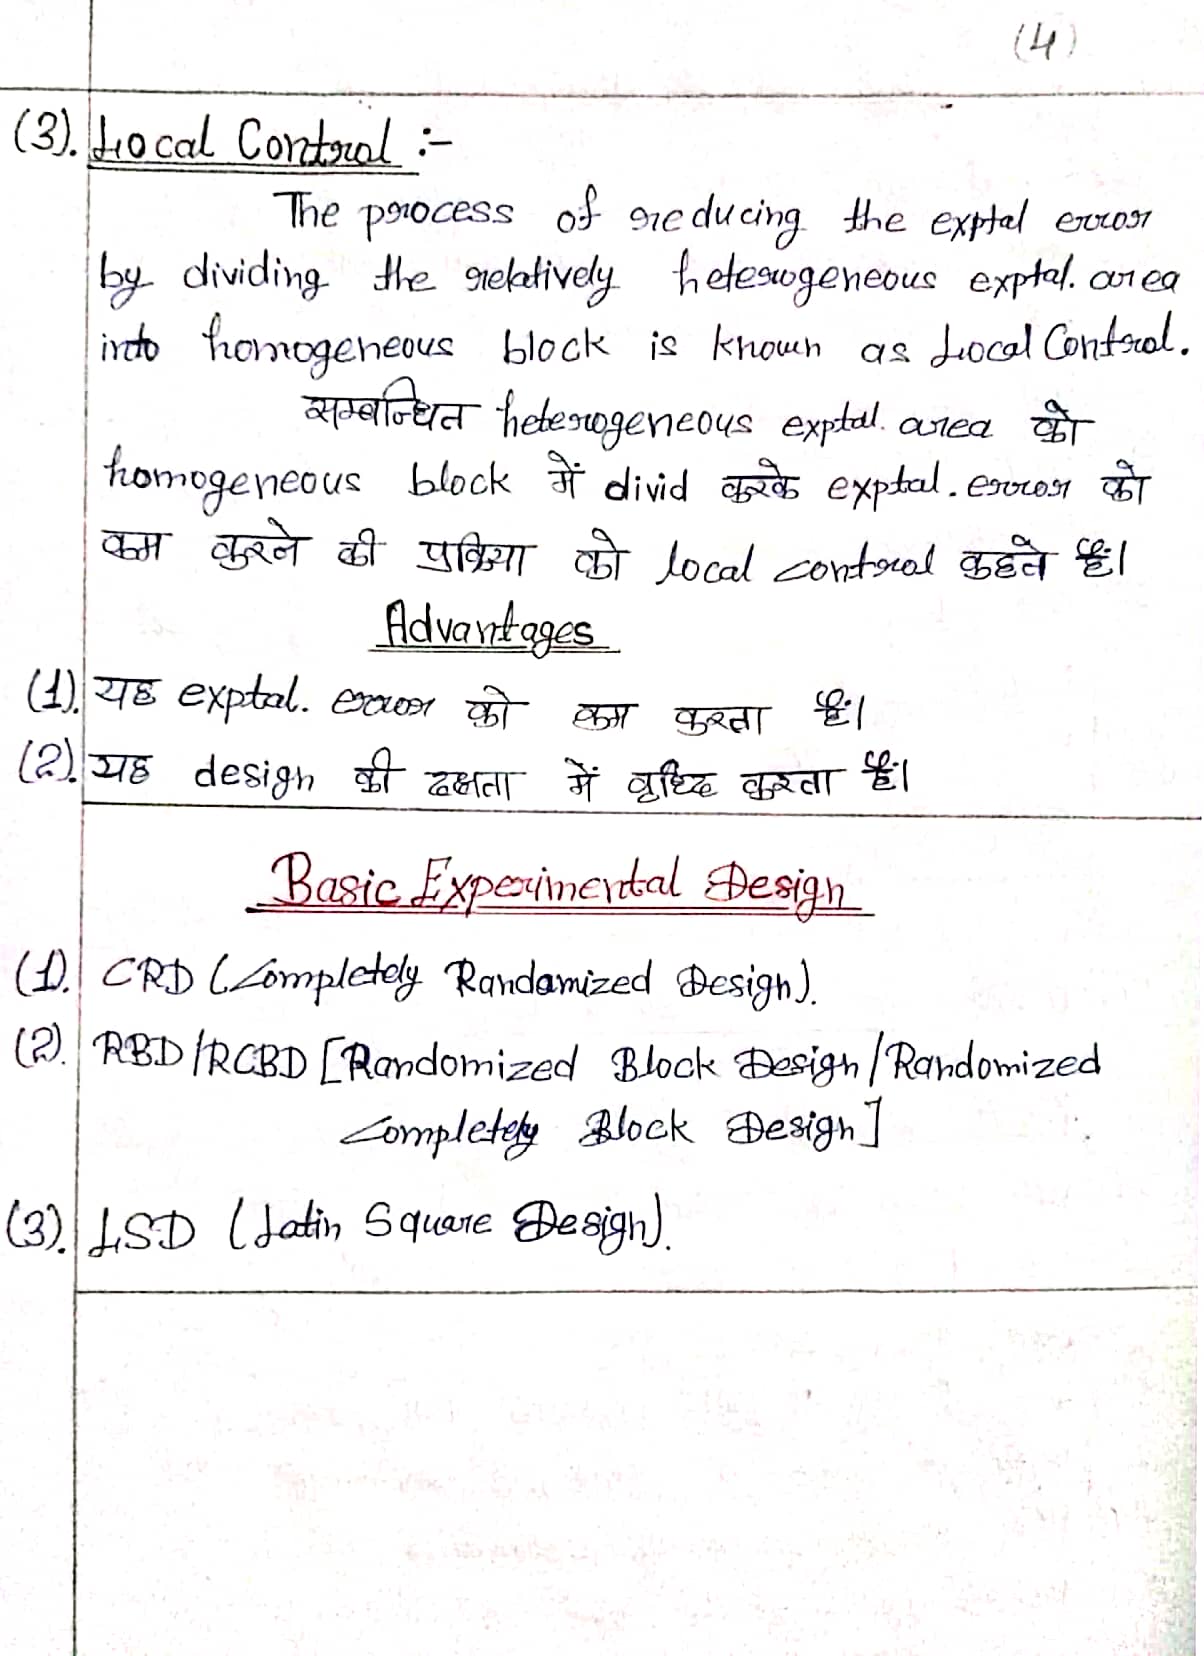 (4)
(3). Local Control :-
The process of reducing the exptal error
by dividing the relatively heterogeneous exptal. area
into homogeneous block is known as Local Control.
सम्बन्धित heterogeneous exptal. area को
homogeneous block में divid करके exptal. error को
कम करने की प्रक्रिया को local control कहते हैं।
Advantages
(1). यह exptal. error को कम करता हैं।
(2). यह design की दक्षता में वृध्दि करता हैं।
Basic Experimental Design
(1). CRD (Completely Randamized Design).
(2). RBD/RCBD [Randomized Block Design/Randomized
Completely Block Design]
(3). LSD (Latin Square Design).